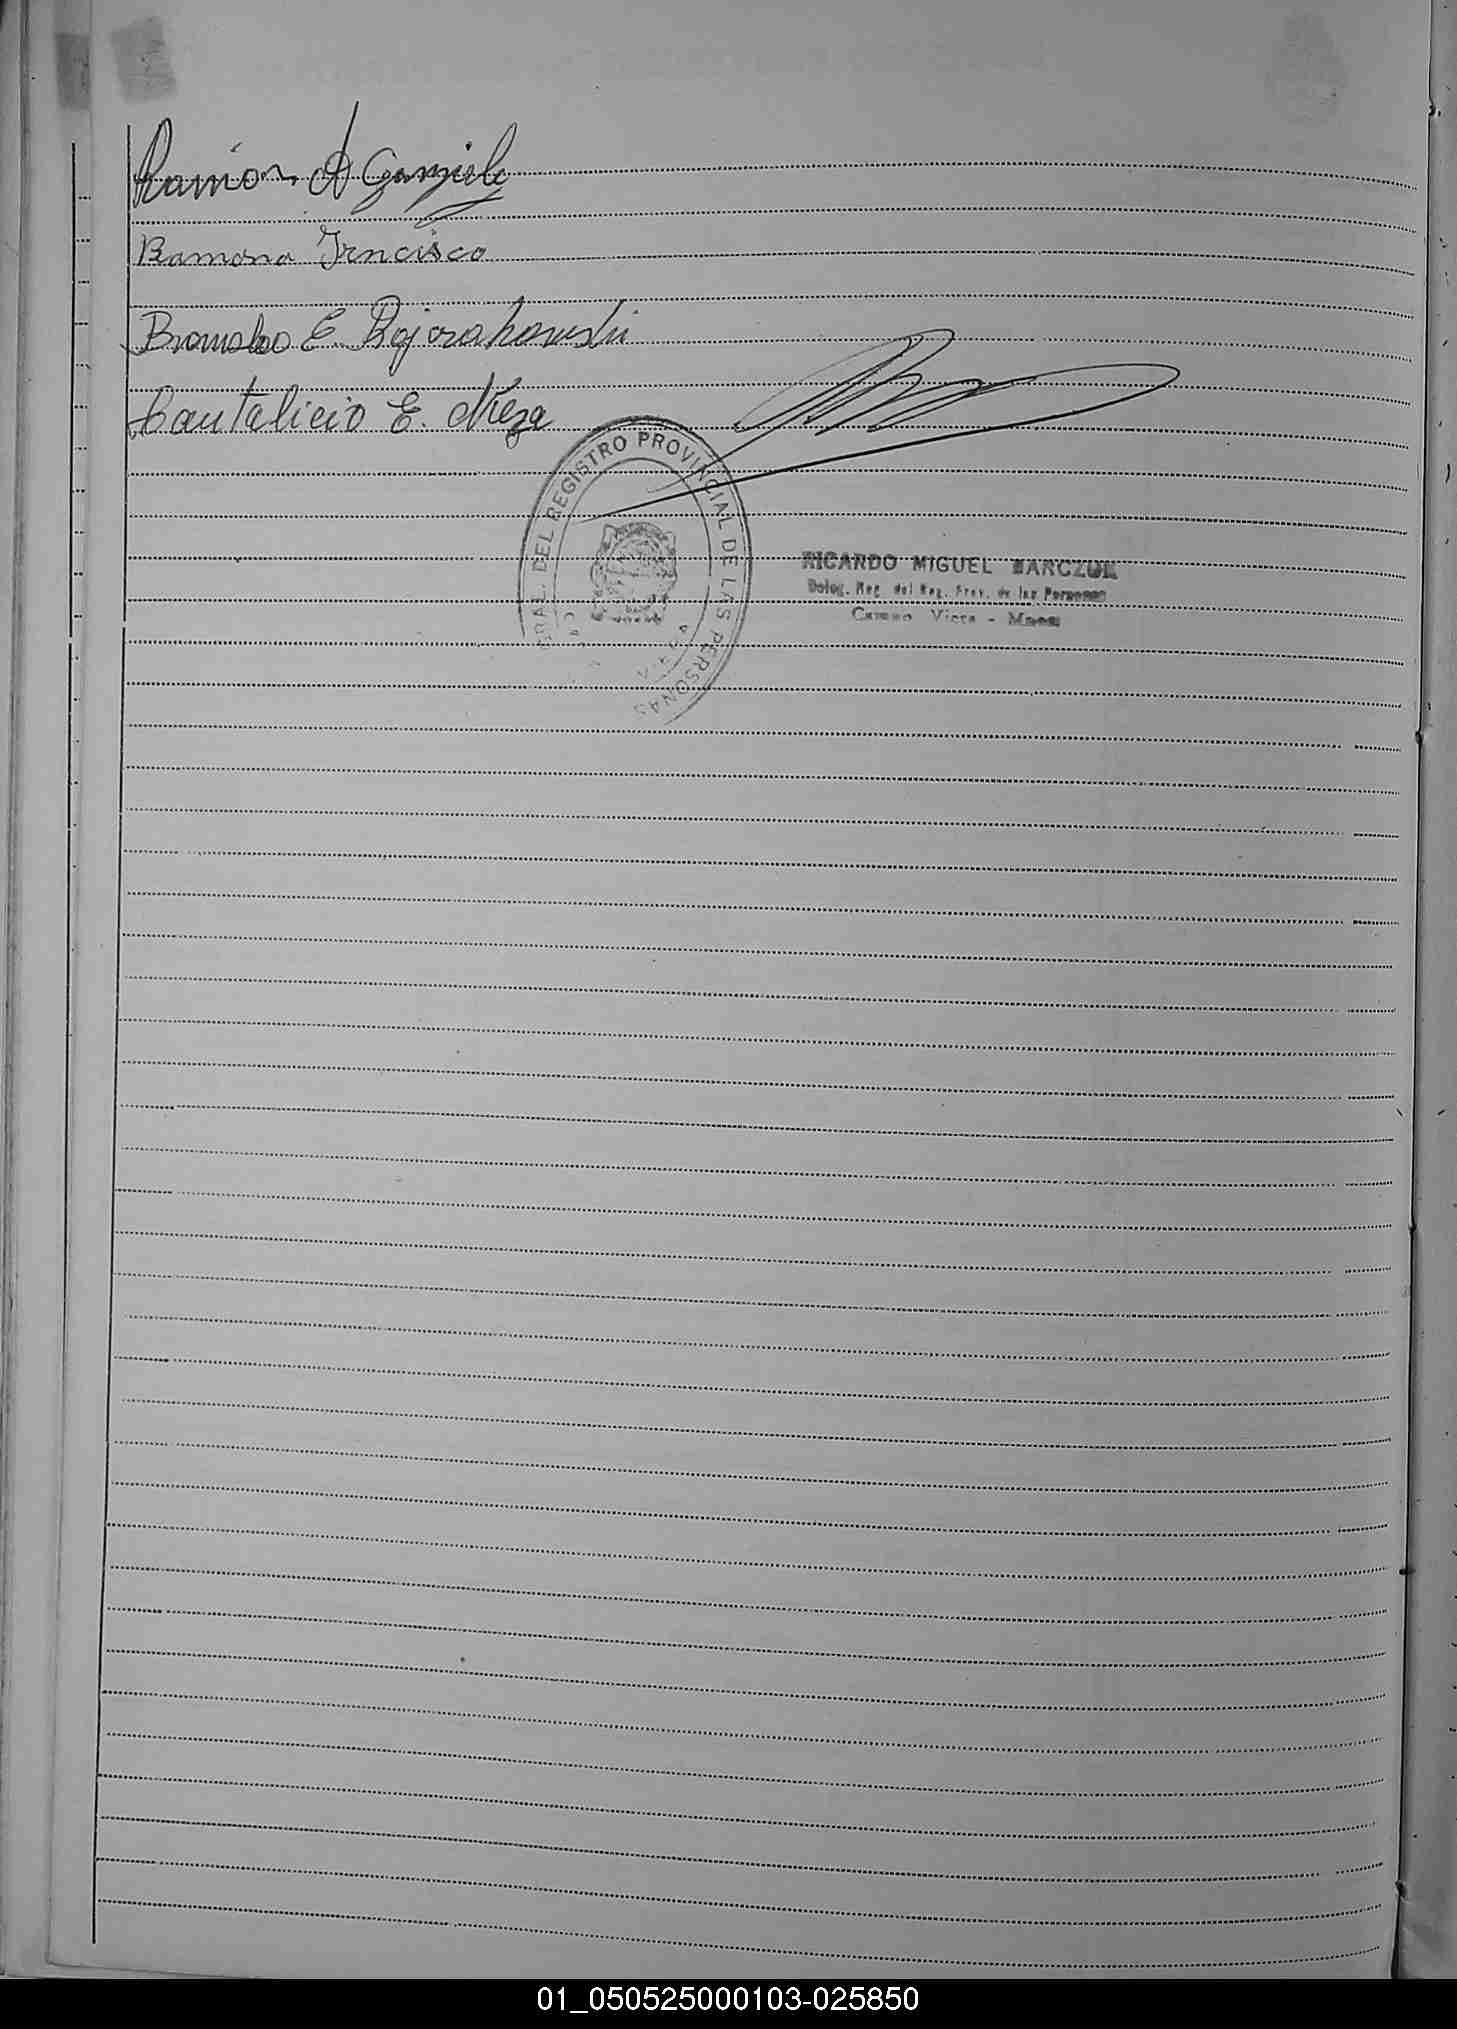 Ramon A Gonzalez
Ramona Francisco
E.
Cantalicio E. Meza
GRAL. DEL REGISTRO PROVINCIAL DE LAS PERSONAS
RICARDO MIGUEL BARCZUK
Deleg. Reg. del Reg. Prov. de las Personas
Campo Viera - Mnes
01_050525000103-025850